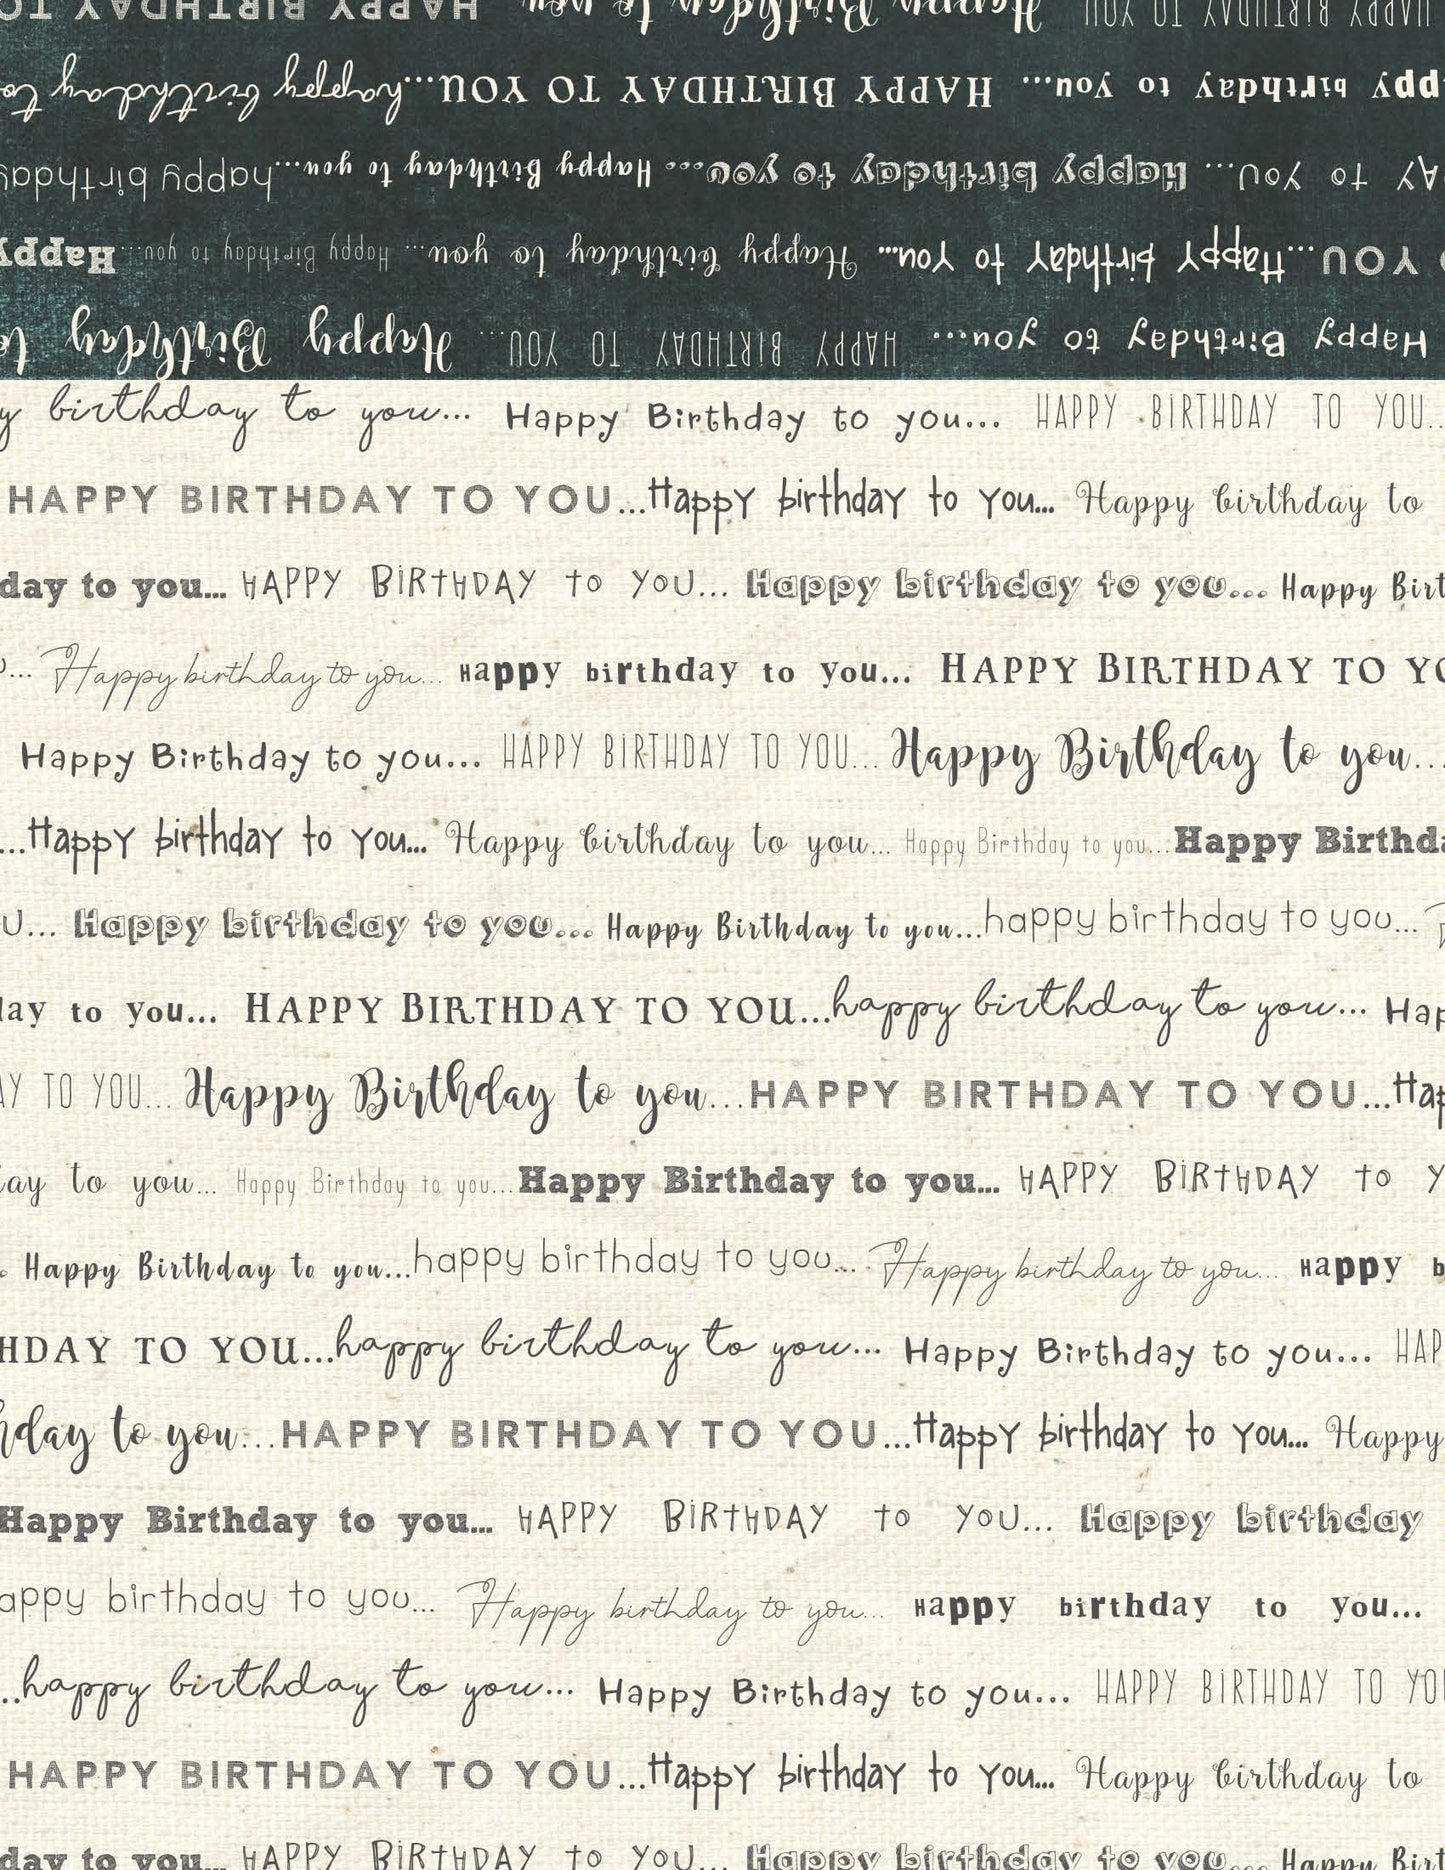 HAPPY BIRTHDAY TO YOU Happy Birthday to you HAPPY BIRTHDAY TO
ppy birthday to you... HAPPY BIRTHDAY TO YOU...happy birthday to
AY to YOU... Happy birthday to you... Happy Birthday to you...happy birthday
O YOU...Happy birthday to you... Happy birthday to you... Happy Birthday to you...Happy
Happy Birthday to you... HAPPY BIRTHDAY TO YOU... Happy Birthday to
y birthday to you... Happy Birthday to you... HAPPY BIRTHDAY TO YOU..
HAPPY BIRTHDAY TO YOU...Happy birthday to you... Happy birthday to
day to you... HAPPY BIRTHDAY to YOU... Happy birthday to you... Happy Birt
... Happy birthday to you... Happy birthday to you... HAPPY BIRTHDAY TO YO
Happy Birthday to you... HAPPY BIRTHDAY TO YOU... Happy Birthday to you...
...Happy birthday to you... Happy birthday to you... Happy Birthday to you...Happy Birthda
U... Happy birthday to you... Happy Birthday to you...happy birthday to you...
day to you... HAPPY BIRTHDAY TO YOU...happy birthday to you... Hap
AY TO YOU... Happy Birthday to you...HAPPY BIRTHDAY TO YOU...Hap
day to you... Happy Birthday to you...Happy Birthday to you... HAPPY BIRTHDAY to Y
. Happy Birthday to you...happy birthday to you... Happy birthday to you... Happy b
HDAY TO YOU...happy birthday to you... Happy Birthday to you... HAP
hday to you...HAPPY BIRTHDAY TO YOU...Happy birthday to you... Happy
Happy Birthday to you... HAPPY BIRTHDAY to YOU... Happy birthday
appy birthday to you... Happy birthday to you... Happy birthday to you...
..happy birthday to you... Happy Birthday to you... HAPPY BIRTHDAY TO YOU
HAPPY BIRTHDAY TO YOU...Happy birthday to you... Happy birthday to
day to you... HAPPY BIRTHDAY to YOU... Happy birthday to you... Happy Birt